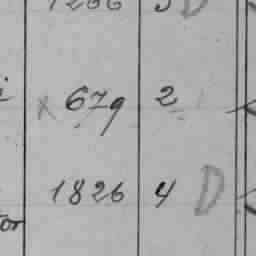 x 679 2
1826 4 D
tor